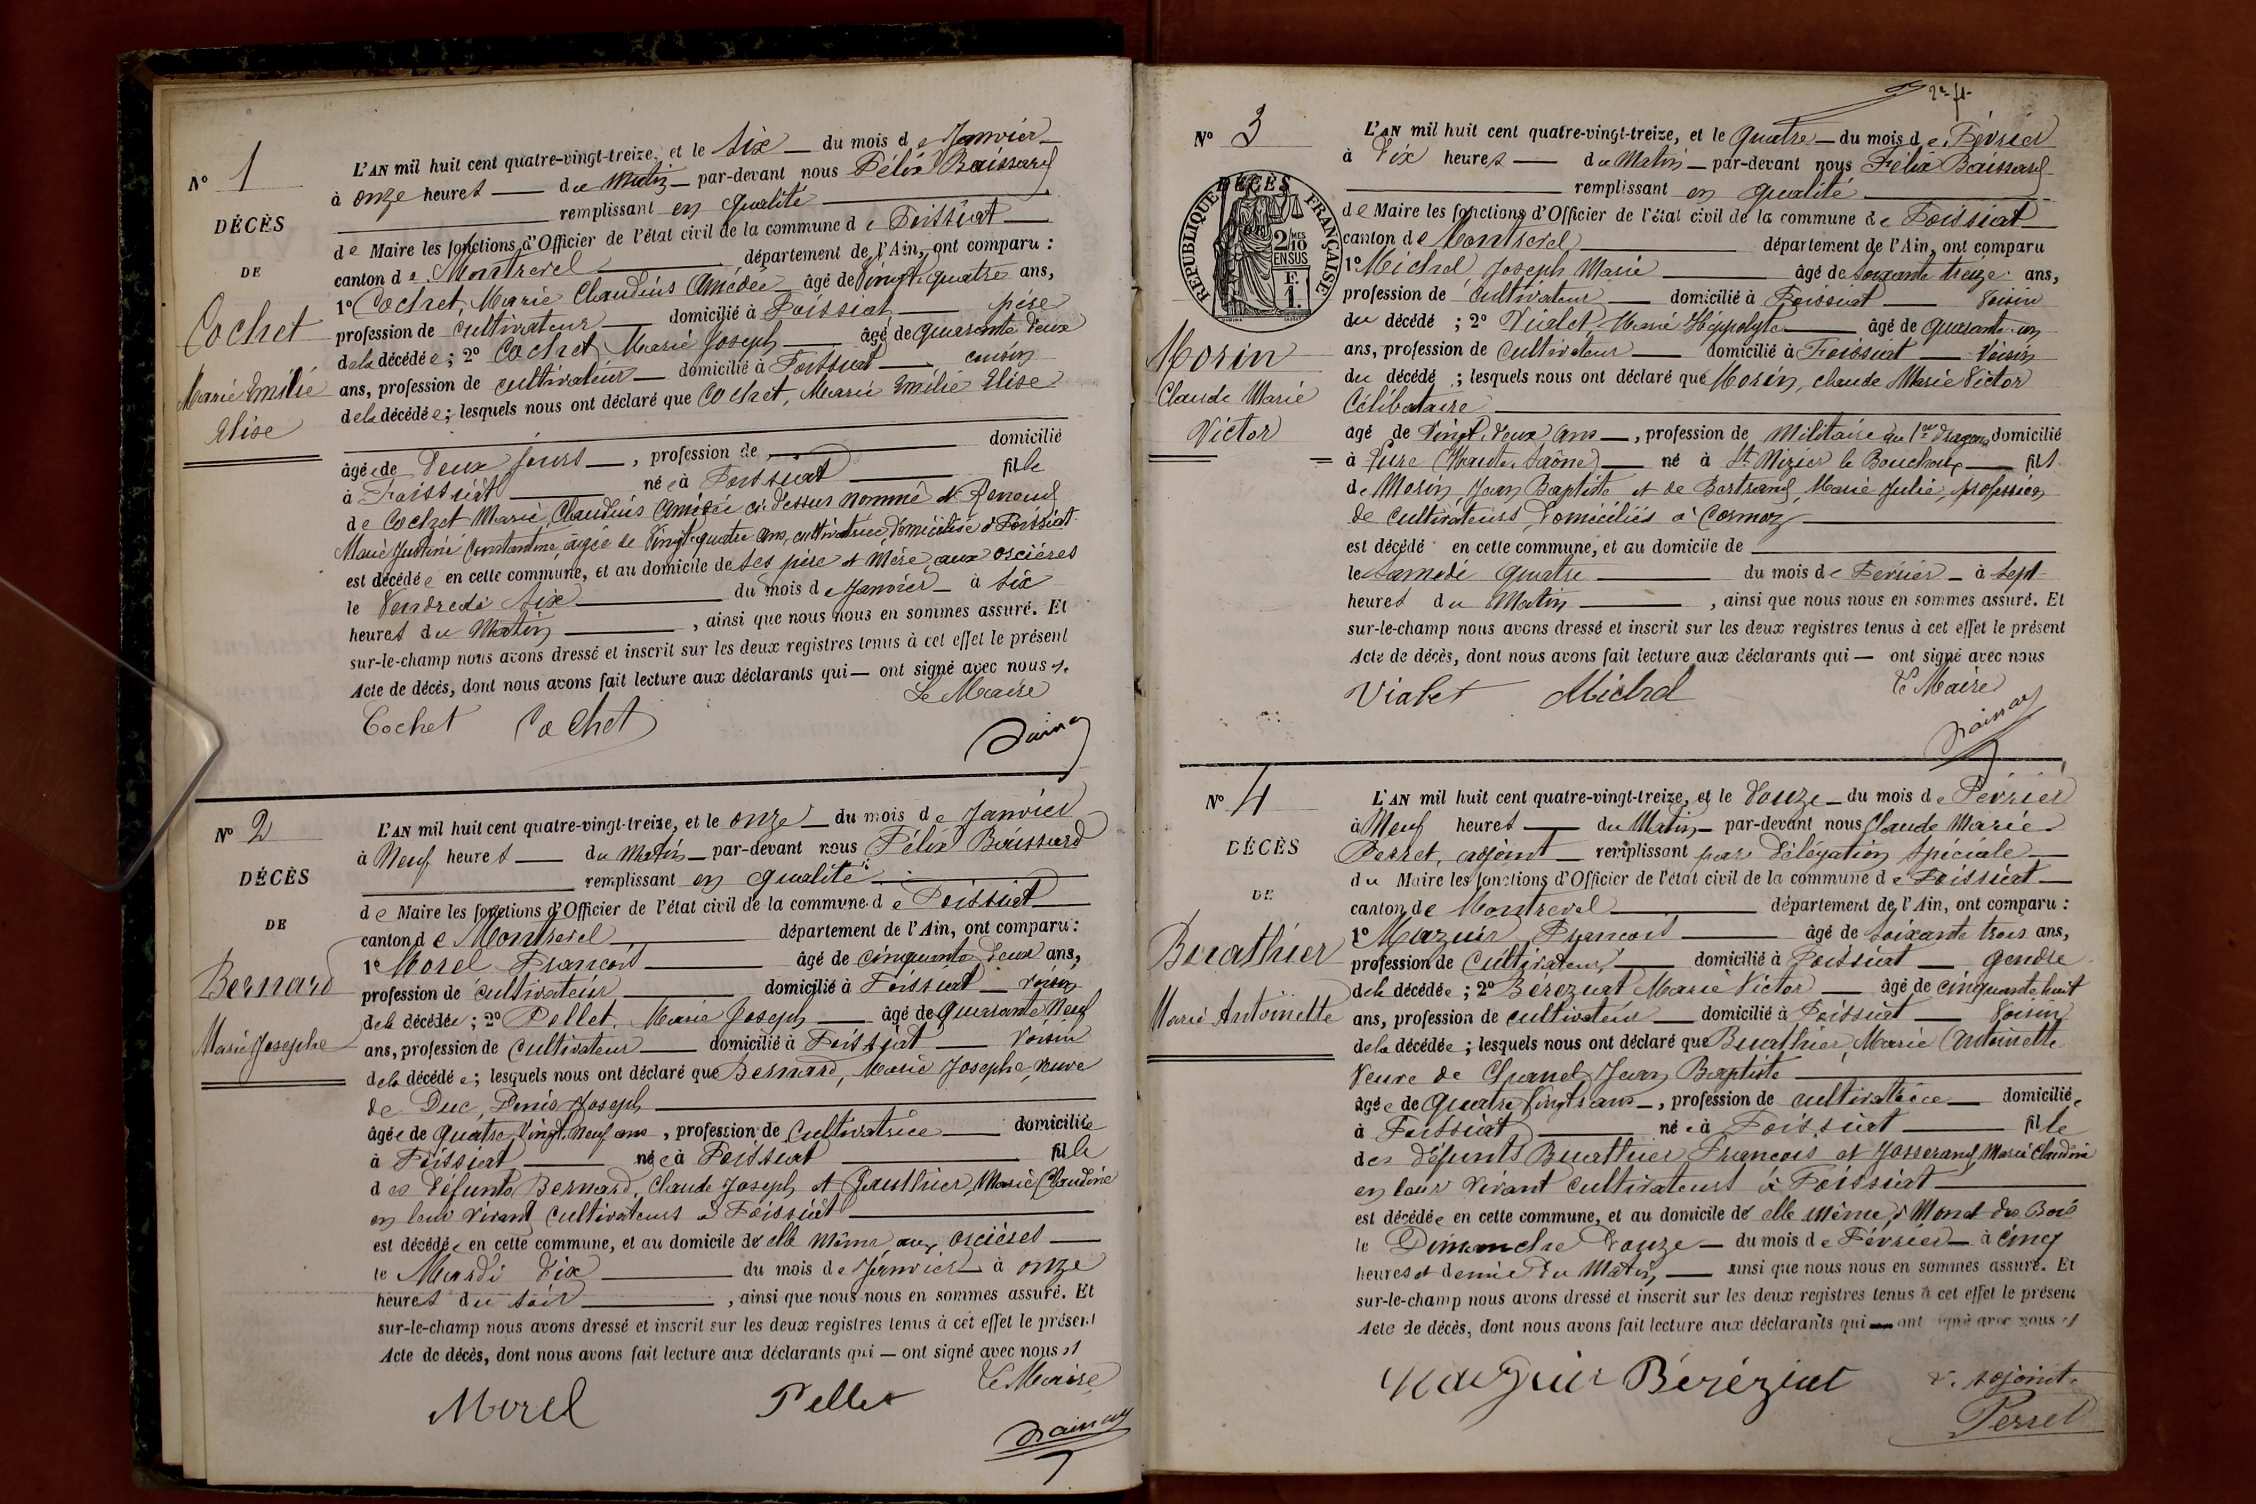 N° 1
DÉCÈS
DE
Cochet
Marie Emilie
Elise
L'AN mil huit cent quatre-vingt-treize, et le six du mois de Janvier
à onze heures du matin par-devant nous Félix Boissard
remplissant en qualité
de Maire les fonctions d'Officier de l'état civil de la commune de Foissiat
canton de Montrevel département de l'Ain, ont comparu :
1° Cochet, Marie Claudius Amédée âgé de vingt-quatre ans,
profession de cultivateur domicilié à Foissiat père
de la décédée; 2° Cochet, Marie Joseph âgé de quarante deux
ans, profession de cultivateur domicilié à Foissiat cousin
de la décédée; lesquels nous ont déclaré que Cochet, Marie Emilie Elise
âgée de deux jours, profession de domicilié
à Foissiat née à Foissiat fille
de Cochet Marie Claudius Amédée ci-dessus nommé et Renoud
Marie Justine Constantine, âgée de vingt-quatre ans, cultivatrice, domiciliée à Foissiat
est décédée en cette commune, et au domicile de ses père et Mère, aux oscières
le Vendredi six du mois de Janvier à six
heures du Matin, ainsi que nous nous en sommes assuré. Et
sur-le-champ nous avons dressé et inscrit sur les deux registres tenus à cet effet le présent
Acte de décès, dont nous avons fait lecture aux déclarants qui ont signé avec nous
Le Maire
Cochet Cochet
N° 2
DÉCÈS
DE
Bernard
Marie Josephe
L'AN mil huit cent quatre-vingt-treize, et le onze du mois de Janvier
à Neuf heures du Matin par-devant nous Félix Boissard
remplissant en qualité
de Maire les fonctions d'Officier de l'état civil de la commune de Foissiat
canton de Montrevel département de l'Ain, ont comparu :
1° Morel François âgé de cinquante deux ans,
profession de cultivateur domicilié à Foissiat voisin
de la décédée; 2° Pellet, Marie Joseph âgé de Quarante Neuf
ans, profession de cultivateur domicilié à Foissiat Voisin
de la décédée; lesquels nous ont déclaré que Bernard, Marie Josephe, veuve
de Duc, Denis Joseph
âgée de Quatre Vingt Neuf ans, profession de Cultivatrice domiciliée
à Foissiat née à Foissiat fille
des défunts Bernard, Claude Joseph et Gauthier, Marie Claudine
en leur vivant cultivateurs à Foissiat
est décédée en cette commune, et au domicile de elle même, aux oscières
le Mardi dix du mois de Janvier à onze
heures du soir, ainsi que nous nous en sommes assuré. Et
sur-le-champ nous avons dressé et inscrit sur les deux registres tenus à cet effet le présent
Acte de décès, dont nous avons fait lecture aux déclarants qui ont signé avec nous
Le Maire
Morel Pellet
N° 3
RÉPUBLIQUE FRANÇAISE
DÉCÈS
2/10 MES EN SUS
F. 1.
Morin
Claude Marie
Victor
L'AN mil huit cent quatre-vingt-treize, et le quatre du mois de Février
à dix heures du Matin par-devant nous Félix Boissard
remplissant en qualité
de Maire les fonctions d'Officier de l'état civil de la commune de Foissiat
canton de Montrevel département de l'Ain, ont comparu
1° Michel Joseph Marie âgé de soixante treize ans,
profession de cultivateur domicilié à Foissiat Voisin
du décédé ; 2° Vialet, Marie Hippolyte âgé de quarante-un
ans, profession de cultivateur domicilié à Foissiat Voisin
du décédé ; lesquels nous ont déclaré que Morin, Claude Marie Victor
Célibataire
âgé de Vingt-deux ans, profession de Militaire au 1er dragons domicilié
à Lure (Haute Saône) né à St Nizier le Bouchoux fils
de Morin, Jean Baptiste et de Bertrand, Marie Julie, profession
de cultivateurs, domiciliés à Cormoz
est décédé en cette commune, et au domicile de
le samedi quatre du mois de Février à sept
heures du Matin, ainsi que nous nous en sommes assuré. Et
sur-le-champ nous avons dressé et inscrit sur les deux registres tenus à cet effet le présent
Acte de décès, dont nous avons fait lecture aux déclarants qui ont signé avec nous
Le Maire
Vialet Michel
N° 4
DÉCÈS
DE
Buathier
Marie Antoinette
L'AN mil huit cent quatre-vingt-treize, et le douze du mois de Février
à Neuf heures du Matin par-devant nous Claude Marie
Perret, adjoint remplissant par délégation spéciale
du Maire les fonctions d'Officier de l'état civil de la commune de Foissiat
canton de Montrevel département de l'Ain, ont comparu :
1° Mazuir François âgé de soixante trois ans,
profession de Cultivateur domicilié à Foissiat gendre
de la décédée; 2° Béréziat Marie Victor âgé de cinquante huit
ans, profession de cultivateur domicilié à Foissiat Voisin
de la décédée; lesquels nous ont déclaré que Buathier, Marie Antoinette
Veuve de Chanel Jean Baptiste
âgée de Quatre Vingts ans, profession de cultivatrice domiciliée
à Foissiat née à Foissiat fille
des défunts Buathier François et Josserand, Marie Claudine
en leur vivant cultivateurs à Foissiat
est décédée en cette commune, et au domicile de elle même,
le Dimanche douze du mois de Février à cinq
heures et demie du Matin, ainsi que nous nous en sommes assuré. Et
sur-le-champ nous avons dressé et inscrit sur les deux registres tenus à cet effet le présent
Acte de décès, dont nous avons fait lecture aux déclarants qui ont signé avec nous
L'adjoint
Mazuir Béréziat
Perret